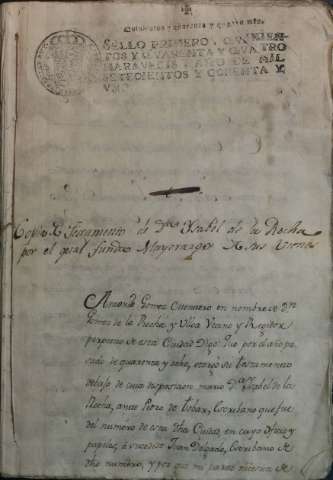 Quinientos y quarenta y quatro mrs.
SELLO PRIMERO, QVINIEN
TOS Y QVARENTA Y QVATRO
MARAVEDIS, AÑO DE MIL
SETECIENTOS Y OCHENTA Y
VNO
Copia de Testamento de Dña Ysabel de la Rocha
por el qual fundo Mayorazgo de sus vienes
Antonio Gomez Guerrero en nombre de Dn
Gomez de la Rocha y Ulloa Vecino y Regidor
perpetuo de esta Ciudad Digo: Que por el año pa
sado de quarenta y ocho, otorgó su testamento
debajo de cuia disposicion murio Dª Ysabel de la
Rocha, ante Pedro de Tobar, Escribano que fue
del numero de esta dha Ciudad, en cuyo oficio y
papeles, á sucedido Juan Delgado, Escribano de
dho numero, y por que mi parte necesita de